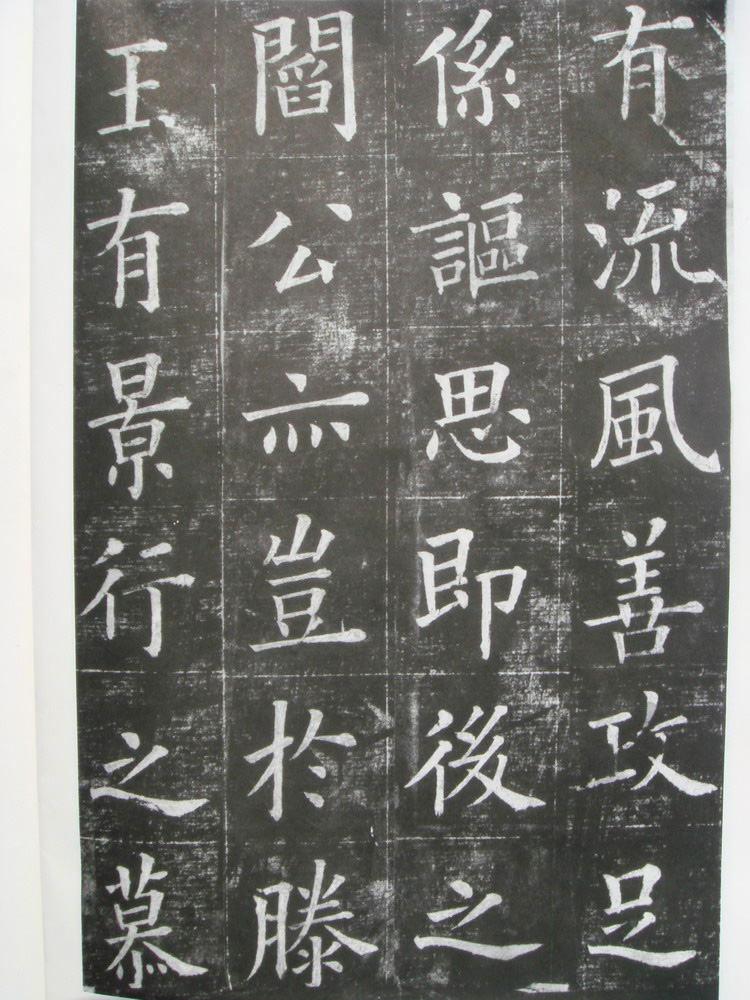 有流風善政足
係謳思即後之
閻公亦豈於滕
王有景行之慕